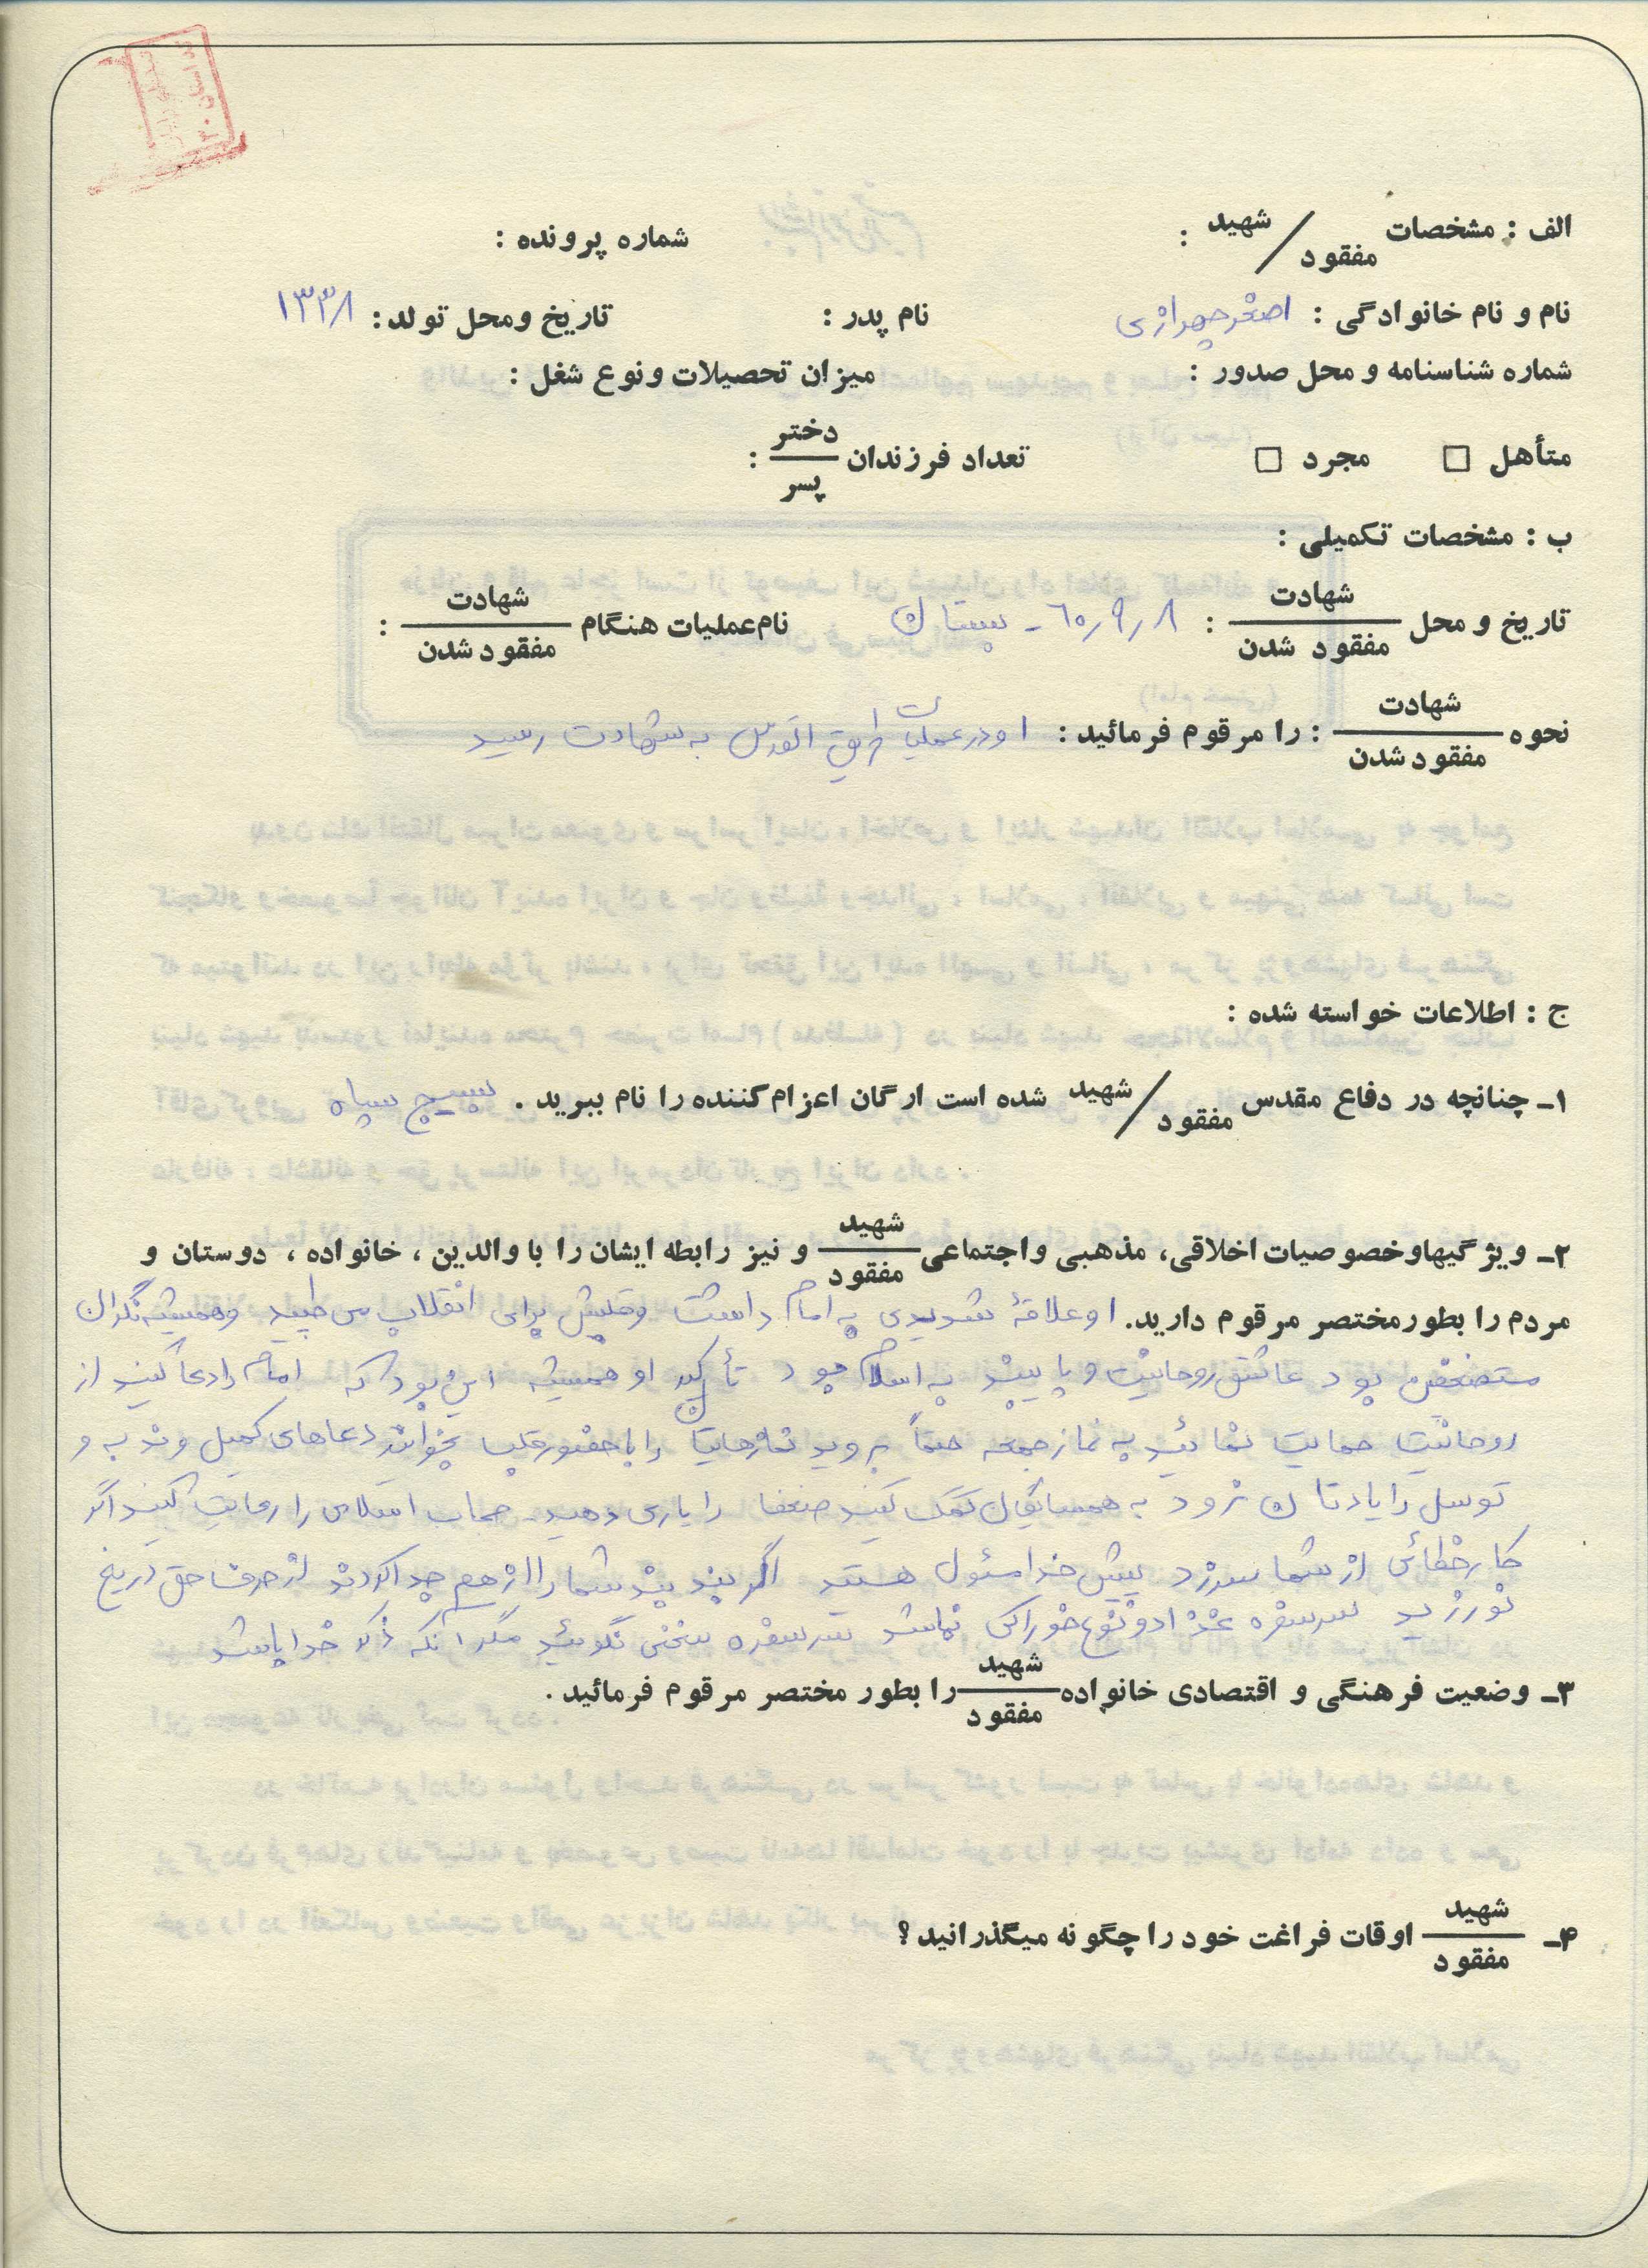 الف : مشخصات شهید / مفقود :
شماره پرونده :
نام و نام خانوادگی : اصغر چهرازی
نام پدر :
تاریخ و محل تولد : ۱۳۳۸
شماره شناسنامه و محل صدور :
میزان تحصیلات و نوع شغل :
متأهل □ مجرد □ تعداد فرزندان دختر / پسر :
ب : مشخصات تکمیلی :
تاریخ و محل شهادت / مفقود شدن : ۶۰٫۹٫۸ - بستان
نام عملیات هنگام شهادت / مفقود شدن :
نحوه شهادت / مفقود شدن : را مرقوم فرمائید : او در عملیات طریق القدس به شهادت رسید
ج : اطلاعات خواسته شده :
۱ـ چنانچه در دفاع مقدس شهید / مفقود شده است ارگان اعزام کننده را نام ببرید . بسیج سپاه
۲ـ ویژگیها و خصوصیات اخلاقی، مذهبی و اجتماعی شهید / مفقود و نیز رابطه ایشان را با والدین ، خانواده ، دوستان و
مردم را بطور مختصر مرقوم دارید. او علاقهٔ شدیدی به امام داشت و قلبش برای انقلاب می طپید و همیشه نگران
مستضعفین بود عاشق روحانیت و پایبند به اسلام بود تأکید او همیشه این بود که امام را دعا کنید از
روحانیت حمایت نمائید به نماز جمعه حتماً بروید نمازهایتان را با حضور قلب بخوانید دعاهای کمیل و ندبه و
توسل را یادتان نرود به همسایگان کمک کنید ضعفا را یاری دهید. حجاب اسلامی را رعایت کنید اگر
کار خطائی از شما سر زد پیش خدا مسئول هستید اگر بند بند شما را از هم جدا کردند از حرف حق دریغ
نورزید سر سفره غذا دو نوع خوراکی نباشد سر سفره سخنی نگوئید مگر آنکه ذکر خدا باشد
۳ـ وضعیت فرهنگی و اقتصادی خانواده شهید / مفقود را بطور مختصر مرقوم فرمائید .
۴ـ شهید / مفقود اوقات فراغت خود را چگونه میگذرانید ؟